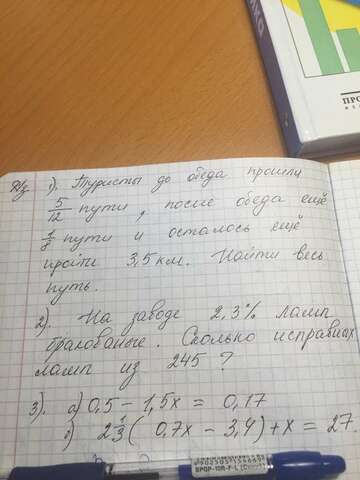 ПРО
Дз 1). Туристы до обеда прошли
5/12 пути, после обеда ещё
1/8 пути и осталось ещё
пройти 3,5 км. Найти весь
путь.
2). На заводе 2,3% ламп
бракованые. Сколько исправных
ламп из 245?
3). а) 0,5 - 1,5x = 0,17
б) 2 1/3 (0,7x - 3,4) + x = 27.
BPGP-10R-F-L